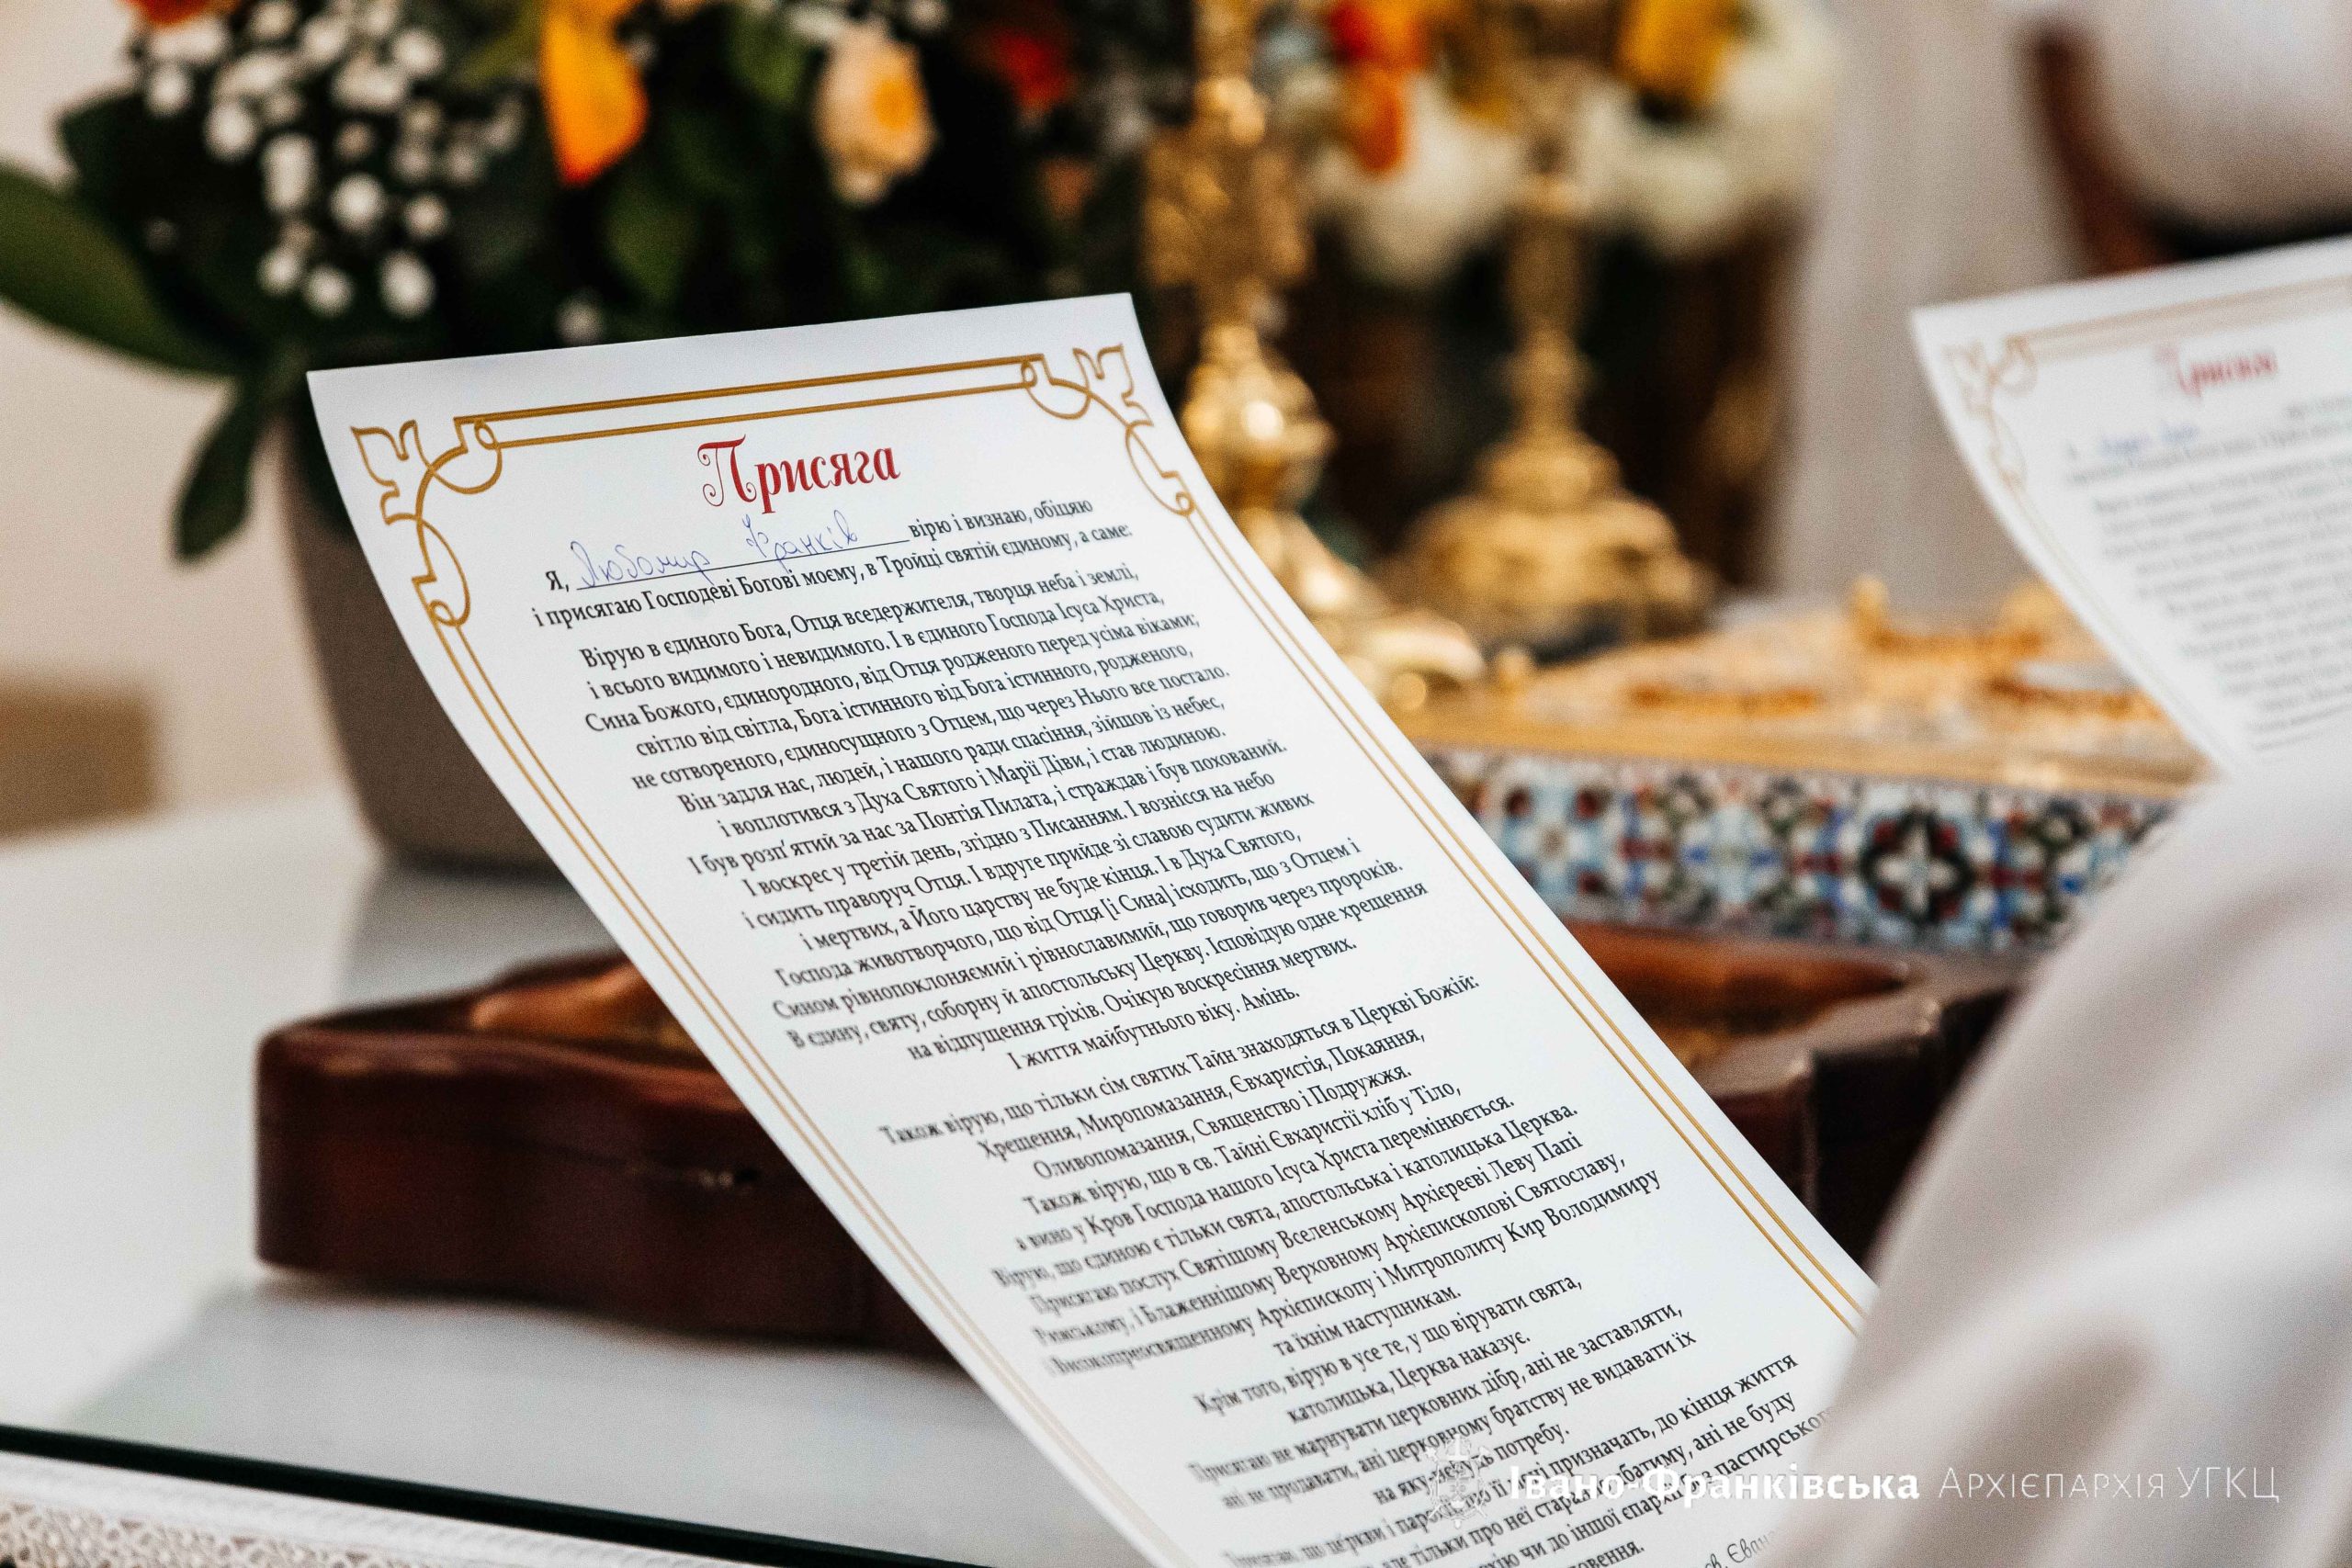 Присяга
Я, Любомир Франків вірю і визнаю, обіцяю
і присягаю Господеві Богові моєму, в Тройці святій єдиному, а саме:
Вірую в єдиного Бога, Отця вседержителя, творця неба і землі,
і всього видимого і невидимого. І в єдиного Господа Ісуса Христа,
Сина Божого, єдинородного, від Отця родженого перед усіма віками;
світло від світла, Бога істинного від Бога істинного, родженого,
не сотвореного, єдиносущного з Отцем, що через Нього все постало.
Він задля нас, людей, і нашого ради спасіння, зійшов із небес,
і воплотився з Духа Святого і Марії Діви, і став людиною.
І був розп'ятий за нас за Понтія Пилата, і страждав і був похований.
І воскрес у третій день, згідно з Писанням. І вознісся на небо
і сидить праворуч Отця. І вдруге прийде зі славою судити живих
і мертвих, а Його царству не буде кінця. І в Духа Святого,
Господа животворчого, що від Отця [і Сина] ісходить, що з Отцем і
Сином рівнопоклоняємий і рівнославимий, що говорив через пророків.
В єдину, святу, соборну й апостольську Церкву. Ісповідую одне хрещення
на відпущення гріхів. Очікую воскресіння мертвих.
І життя майбутнього віку. Амінь.
Також вірую, що тільки сім святих Тайн знаходяться в Церкві Божій:
Хрещення, Миропомазання, Євхаристія, Покаяння,
Оливопомазання, Священство і Подружжя.
Також вірую, що в св. Тайні Євхаристії хліб у Тіло,
а вино у Кров Господа нашого Ісуса Христа перемінюється.
Вірую, що єдиною є тільки свята, апостольська і католицька Церква.
Присягаю послух Святішому Вселенському Архієреєві Леву Папі
Римському, і Блаженнішому Верховному Архієпископові Святославу,
і Високопреосвященному Архієпископу і Митрополиту Кир Володимиру
та їхнім наступникам.
Крім того, вірую в усе те, у що вірувати свята,
католицька, Церква наказує.
Присягаю не марнувати церковних дібр, ані не заставляти,
ані не продавати, ані церковному братству не видавати їх
на яку-небудь потребу.
церкви і парохії, що її мені призначать, до кінця життя
але тільки про неї стара, ані не буду
чи до іншої єпархії без пастирського
Присяга
Івано-Франківська Архієпархія УГКЦ